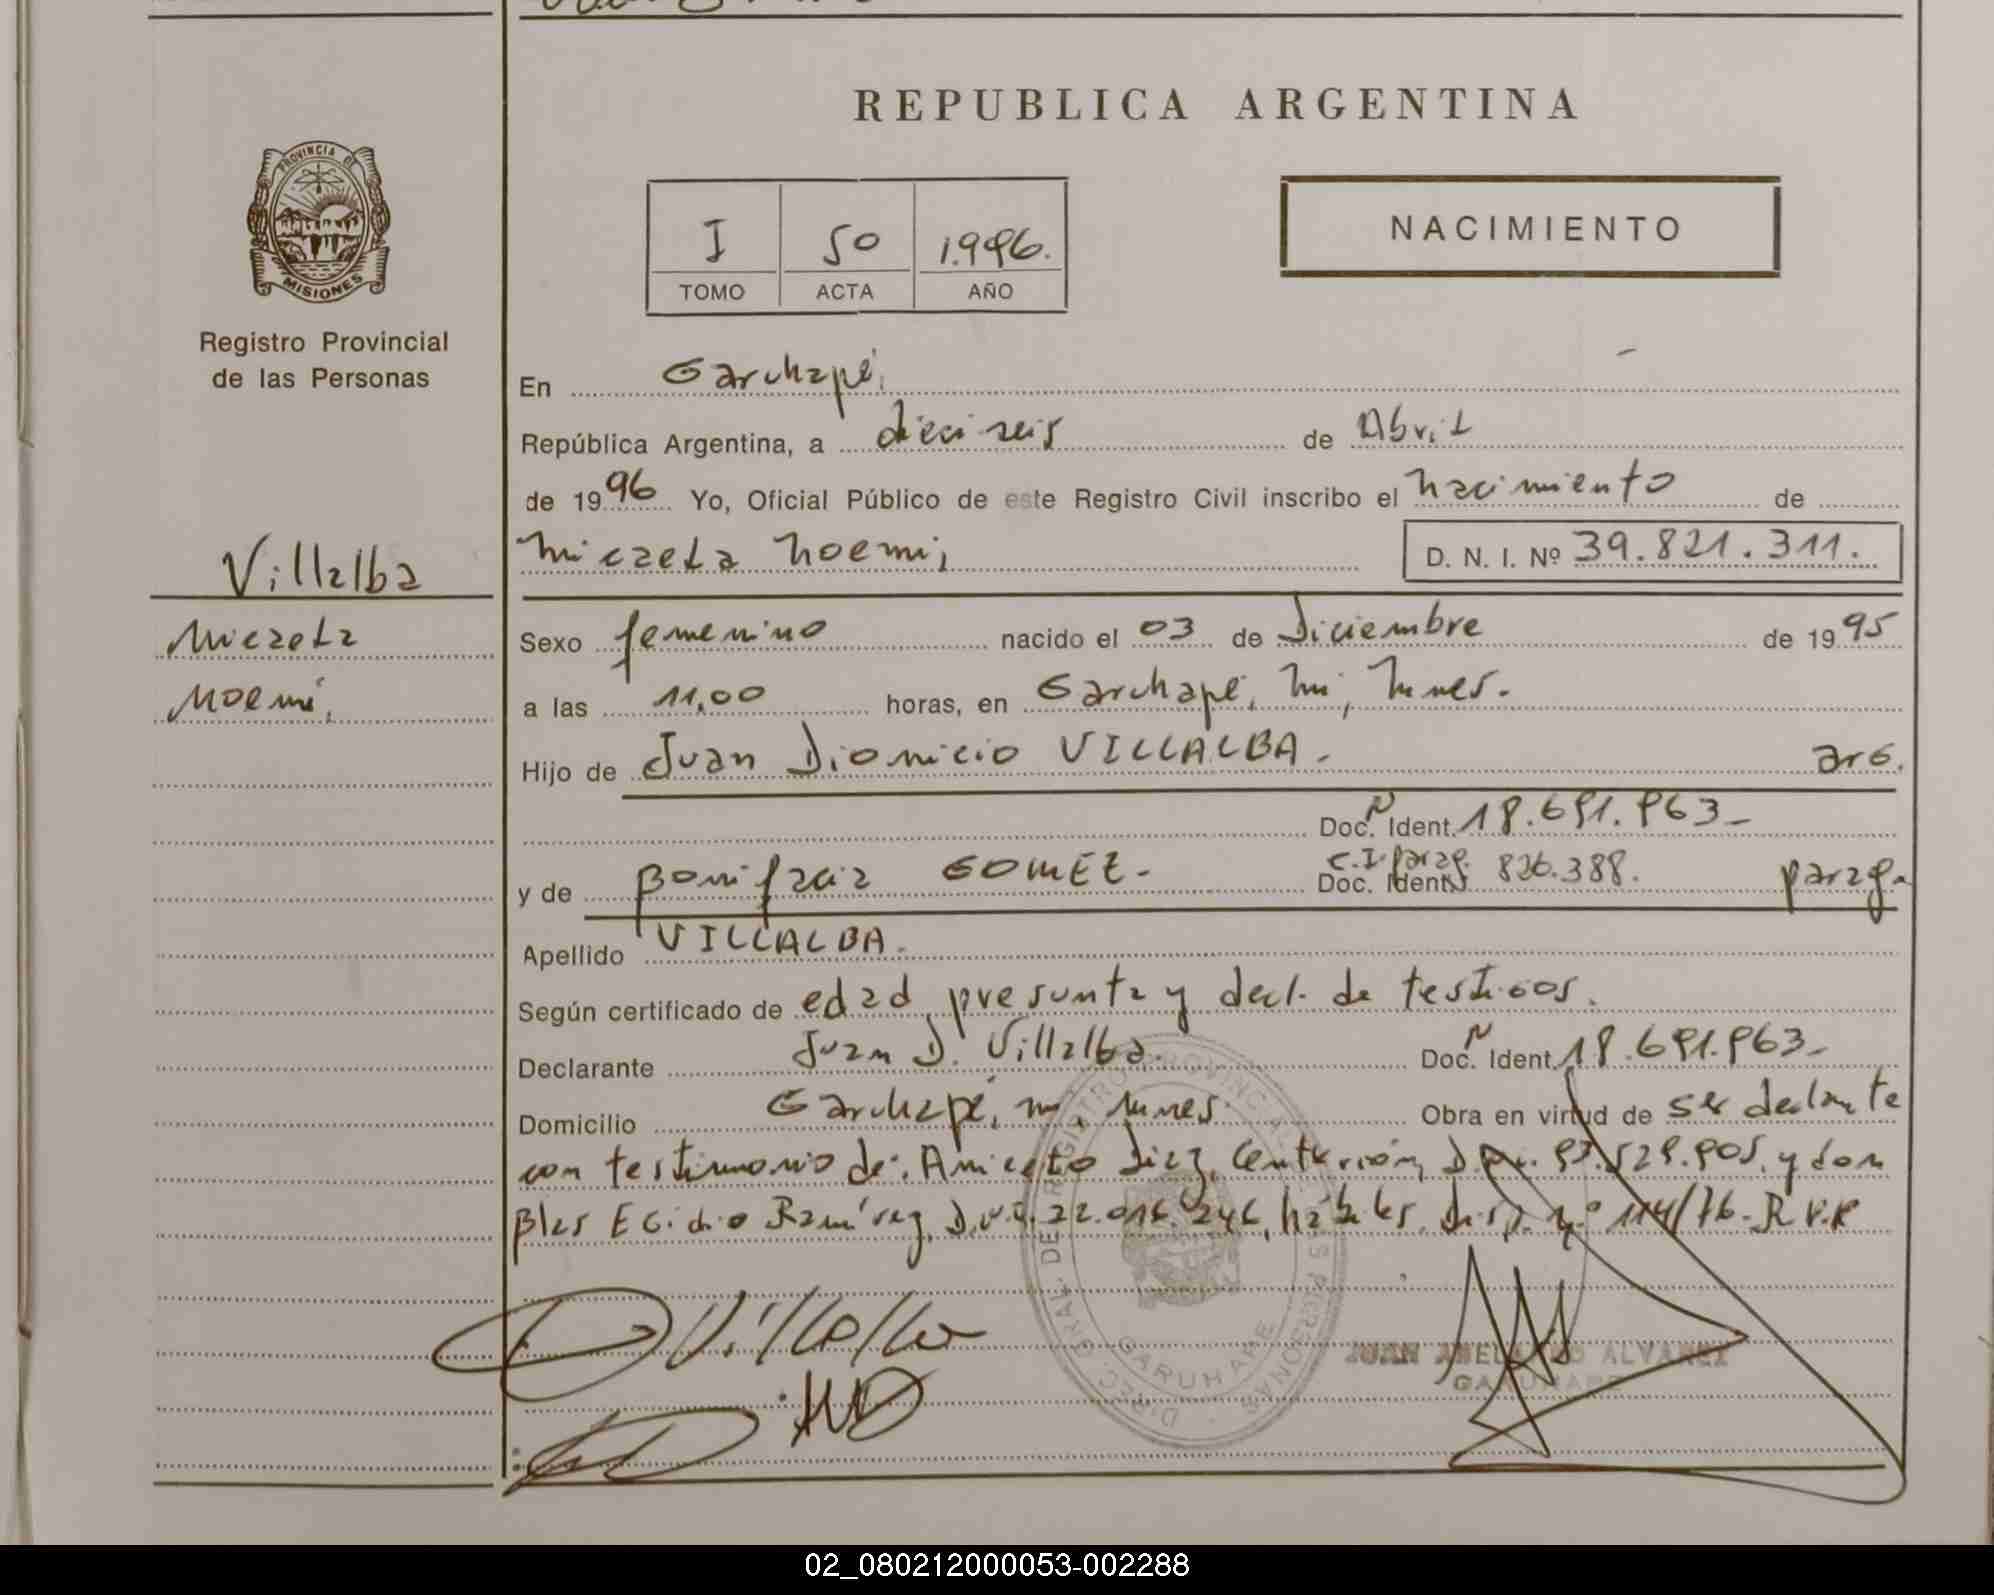 REPUBLICA ARGENTINA
PROVINCIA DE
MISIONES
Registro Provincial
de las Personas
NACIMIENTO
I 50 1.996.
TOMO ACTA AÑO
En Garuhapé,
República Argentina, a dieciseis de Abril
de 1996 Yo, Oficial Público de este Registro Civil inscribo el nacimiento de
Micaela Noemi, D. N. I. Nº 39.821.311.
Villalba
Micaela
Noemi,
Sexo femenino nacido el 03 de Diciembre de 1995
a las 11,00 horas, en Garuhapé, Mi,
Hijo de Juan Dionicio VILLALBA. arg.
Doc. Ident. 18.691.963-
y de Bonifacia GOMEZ. C.I. parag. Doc. Ident. 826.388. parag.
Apellido VILLALBA.
Según certificado de edad presunta y decl. de testigos.
Declarante Juan D. Villalba. Doc. Ident. 18.691.963-
Domicilio Garuhapé, Obra en virtud de ser declante
con testimonio de: Aniceto Diaz Centurión, y don
Blas Egidio Ramírez, D.N.I. 22.016.246, hábiles. Disp. Nº 114/76-R.P.P
DIREC. GRAL. DE REGISTRO PROVINCIAL DE LAS PERSONAS
GARUHAPE
JUAN ALVAREZ
GARUHAPE
D Villalba
02_080212000053-002288